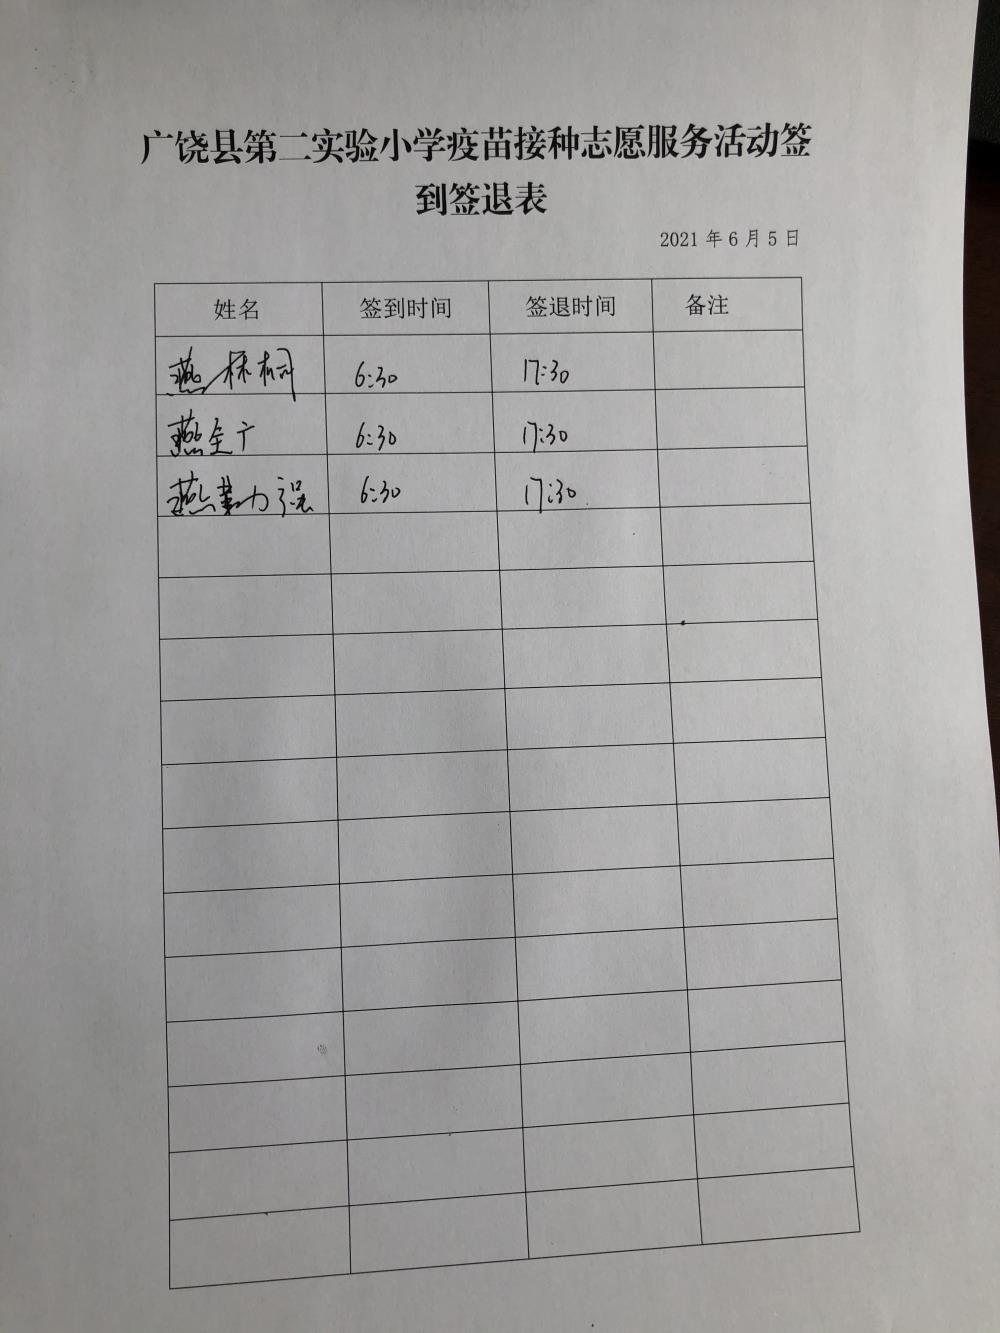 广饶县第二实验小学疫苗接种志愿服务活动签
到签退表
2021 年 6 月 5 日
姓名 签到时间 签退时间 备注
燕林桐 6:30 17:30
燕金广 6:30 17:30
燕勤强 6:30 17:30